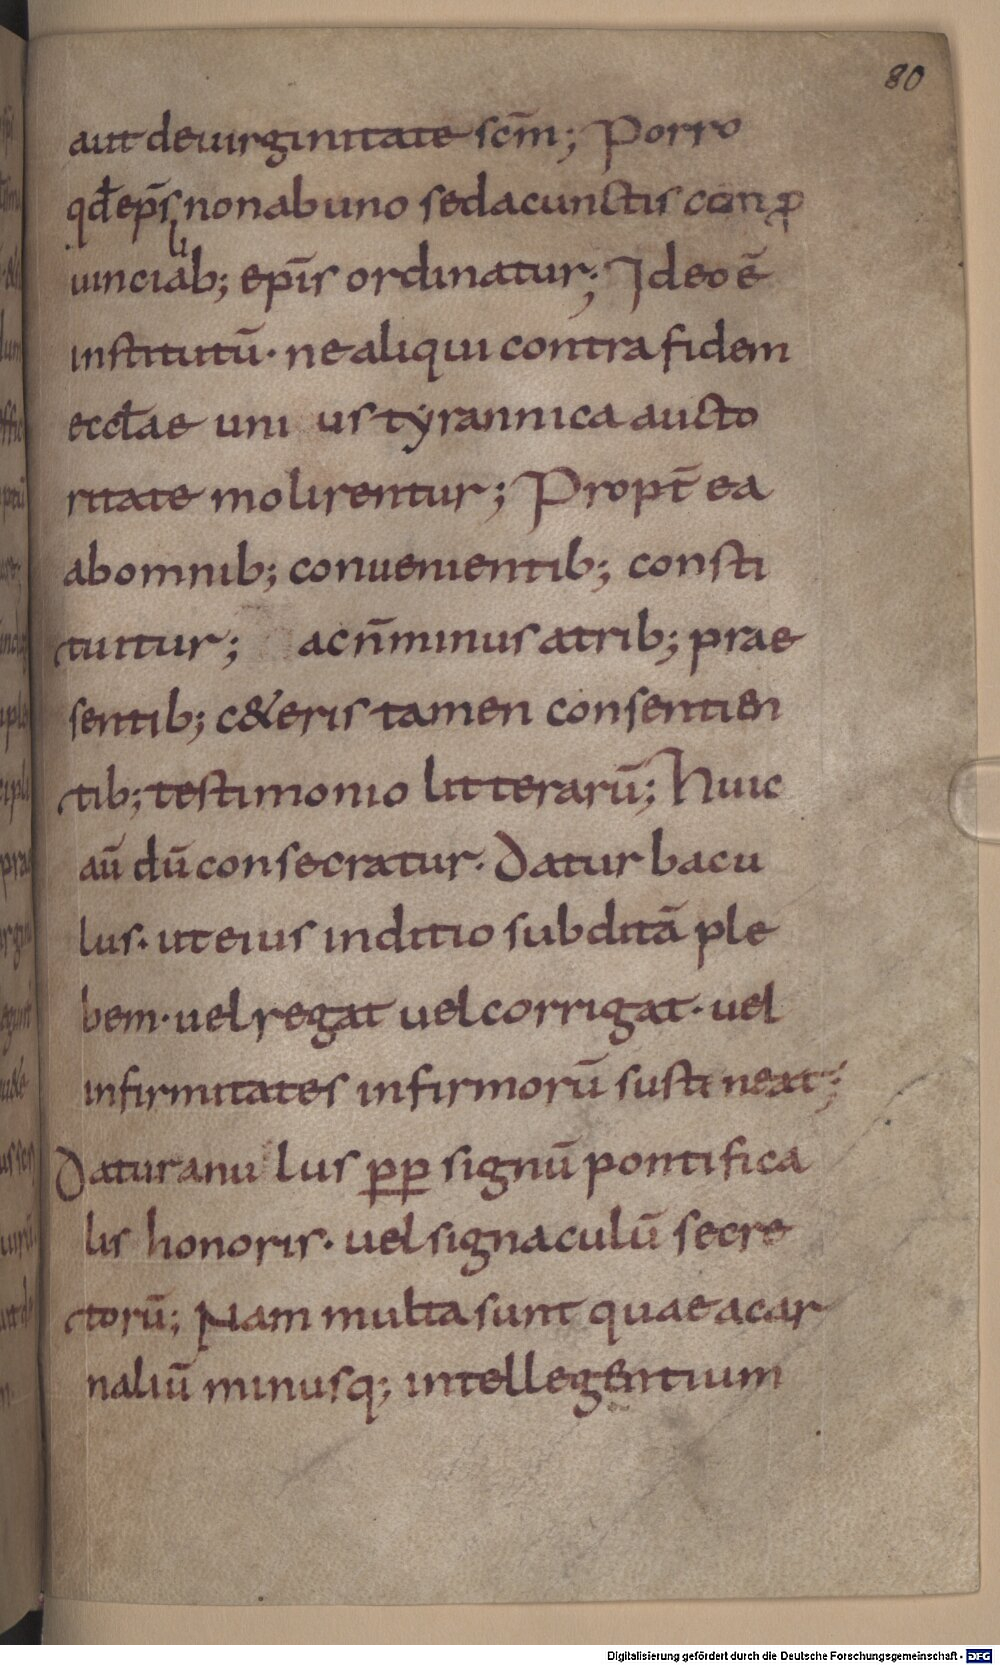 80
aut deuirginitate scm̄; Porro
qđ ep̄s non abuno sed acunctis conꝓ
uincialib; ep̄is ordinatur; Ideo ē
institutū· ne aliqui contra fidem
eccłae uni us tyrannica aucto
ritate molirentur; Propt̄ ea
abomnib; conuenientib; consti
tuitur; ac n̄ minus atrib; prae
sentib; c&eris tamen consentien
tib; testimonio litterarū; Huic
aū dū consecratur· Datur bacu
lus· ut eius inditio subditā ple
bem· uel regat uel corrigat· uel
infirmitates infirmorū sustineat;
Datur anu lus ꝑꝑ signū pontifica
lis honoris· uel signaculū secre
torū; Nam multa sunt quae acar
naliū minusq; intellegentium
Digitalisierung gefördert durch die Deutsche Forschungsgemeinschaft - DFG